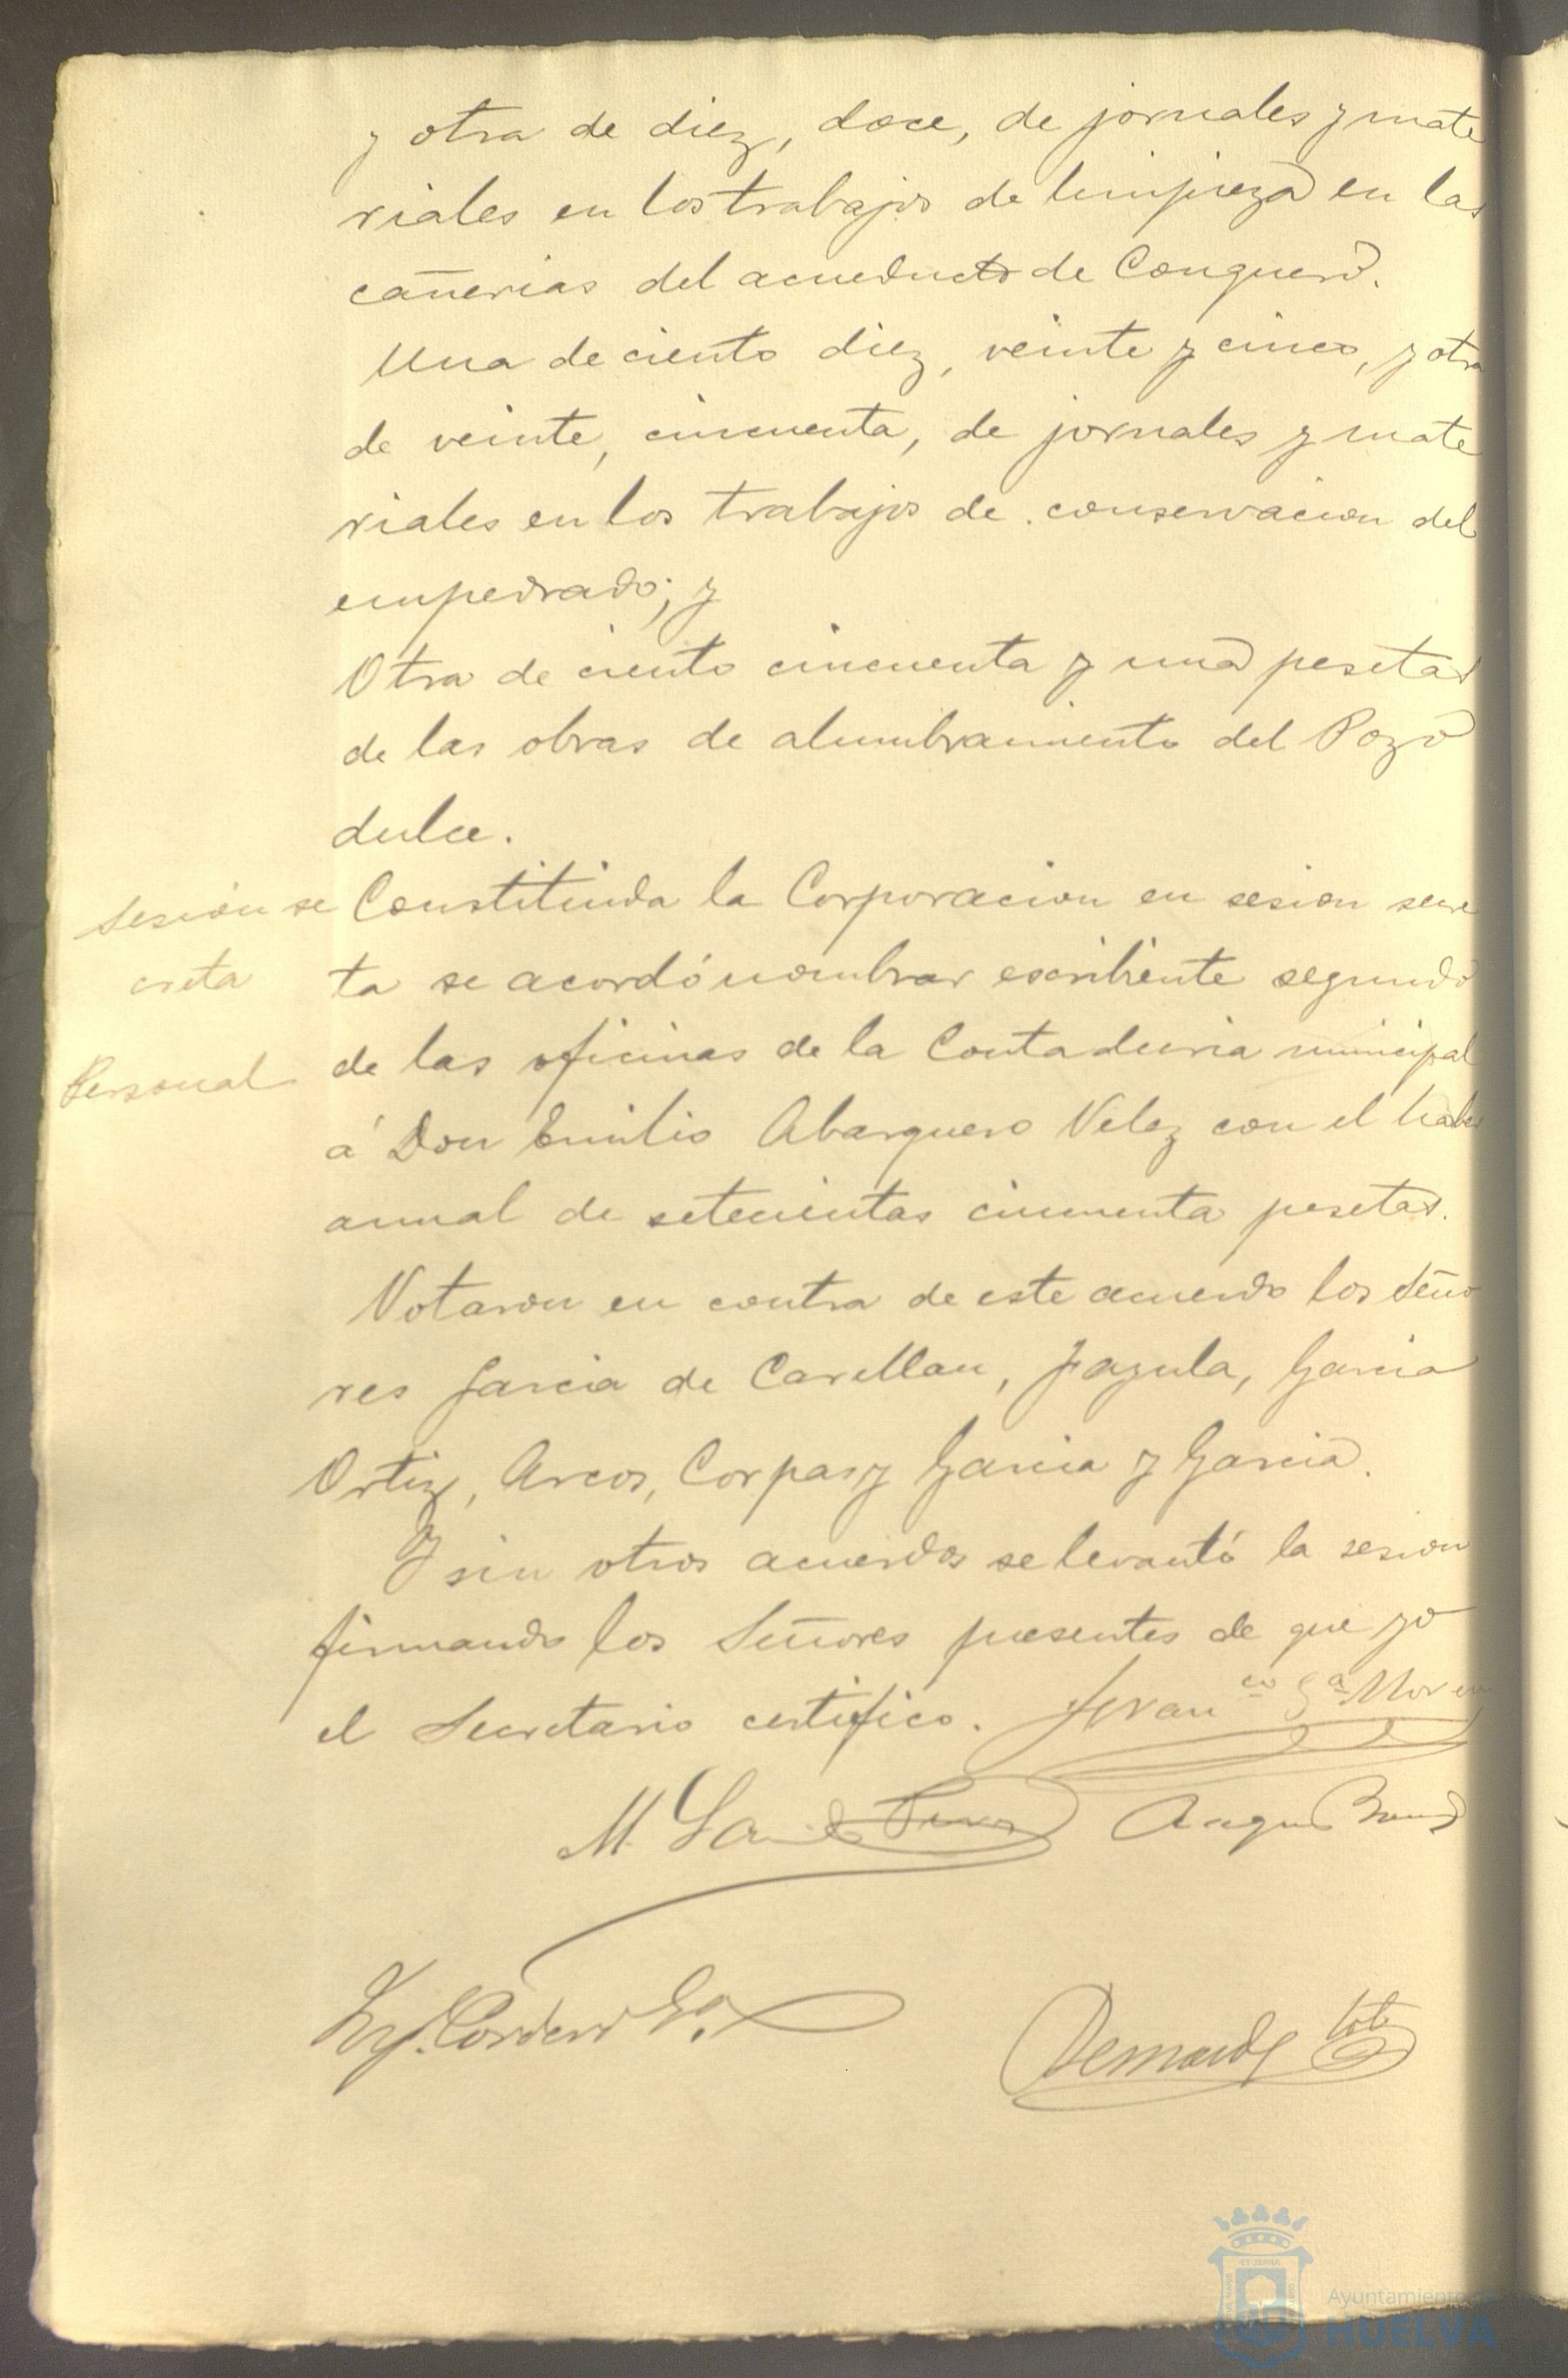 y otra de diez, doce, de jornales y mate
riales en los trabajos de limpieza en las
cañerias del acueducto de Conquero.
Una de ciento diez, veinte y cinco, y otra
de veinte, cincuenta, de jornales y mate
riales en los trabajos de conservacion del
empedrado; y
Otra de ciento cincuenta y una pesetas
de las obras de alumbramiento del Pozo
dulce.
Sesión se
creta
Constituida la Corporacion en sesion secre
ta se acordó nombrar escribiente segundo
Personal
de las oficinas de la Contaduria municipal
á Don Emilio Abarquero Velez con el haber
anual de setecientas cincuenta pesetas.
Votaron en contra de este acuerdo los Seño
res Garcia de Carellan, Jazula, Garcia
Ortiz, Arcos, Corpas y Garcia y Garcia.
Y sin otros acuerdos se levantó la sesion
firmando los Señores presentes de que yo
el Secretario certifico. Franco Ga Moreno
M. 
Cordero Ga
Ayuntamiento de
HUELVA